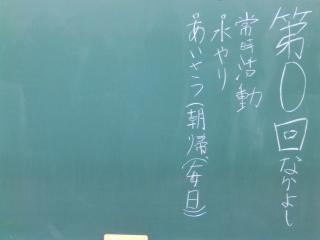 第0回なかよし
常時活動
・水やり
・あいさつ(朝、帰(毎日))